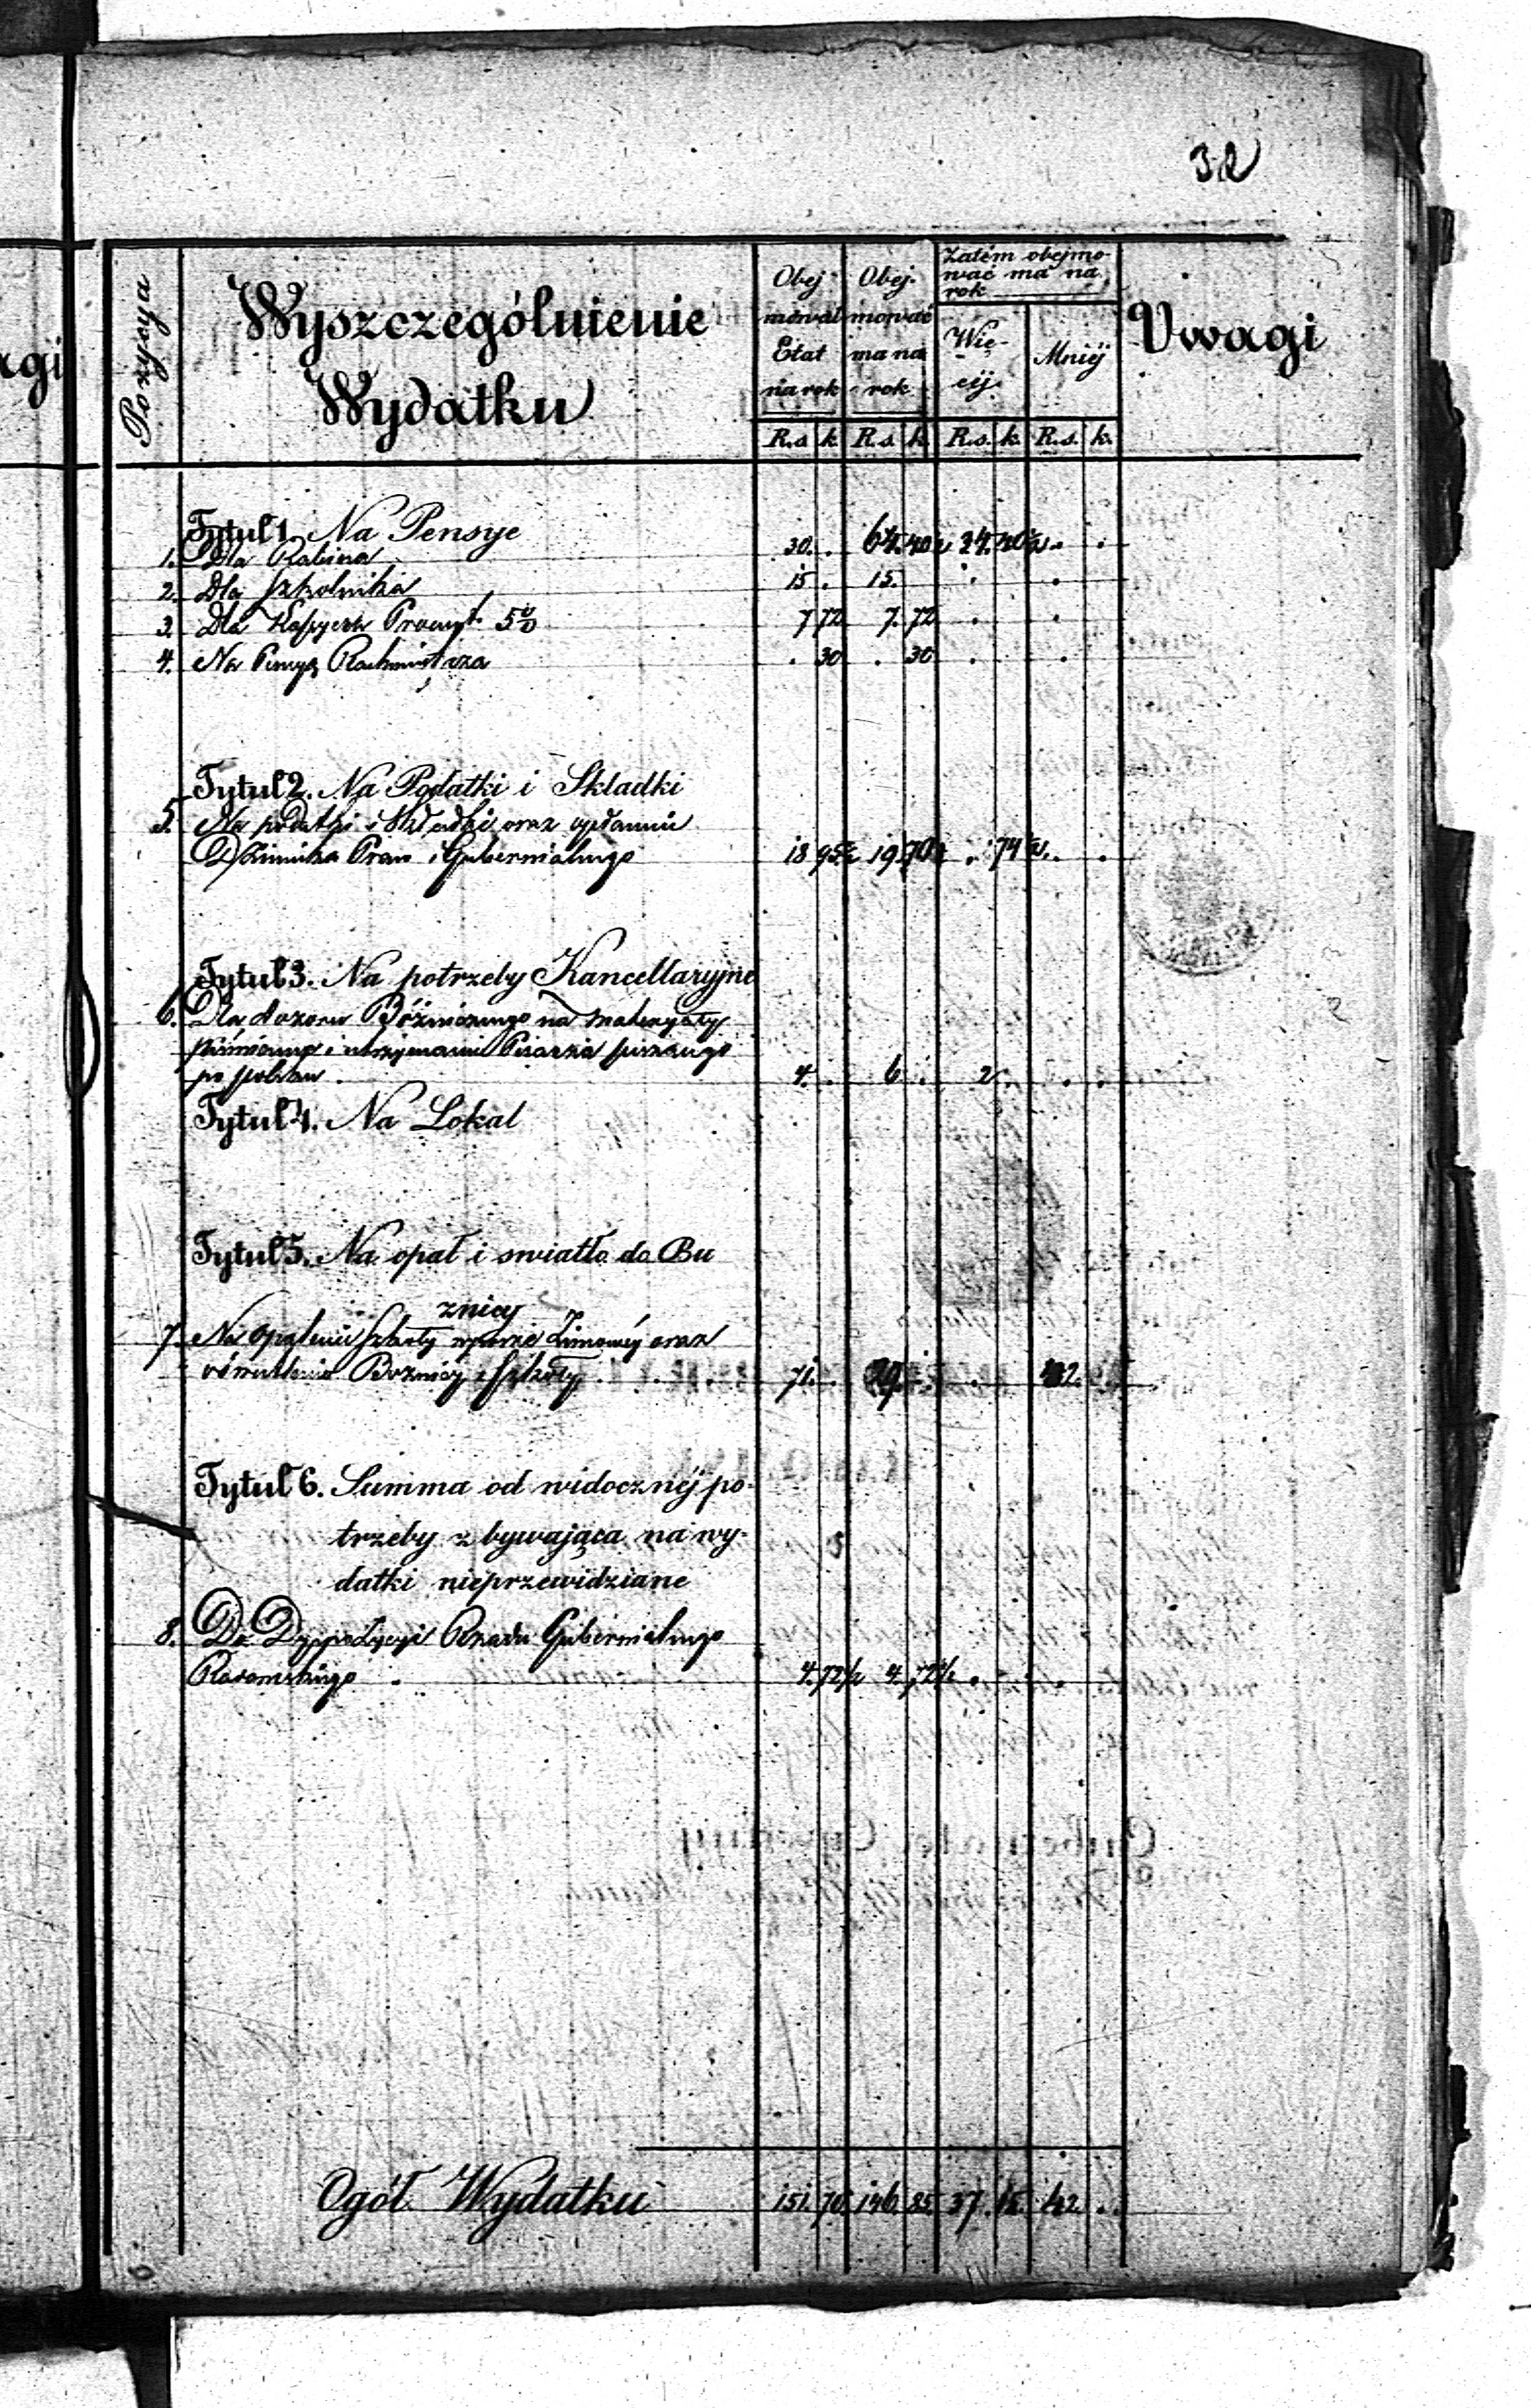 32
agi
Pozycya
Wyszczególnienie
Wydatku
Obej
mował
Etat
na rok
Obej-
mować
ma na
rok
Zatém obejmo-
wać ma na
rok
Wię-
céj.
Mniéj
Uwagi
R.s k. R.s. k. R.s. k. R.s. k.
Tytuł 1. Na Pensye
1. Dla Rabina 30. . 64. 40½ 34. 40½ . .
2. Dla Szkolnika 15 . 15. . .
3. Dla Kassyera Procent 5% 7 72 7. 72 . .
4. Na Pensyę Rachmistrza . 30 . 30 . .
Tytuł 2. Na Podatki i Składki
5. Na podatki i Składki oraz
Dziennika Praw i Gubernialnego 18 95½ 19 70 . 74½ . .
Tytuł 3. Na potrzeby Kancellaryjne
6. Dla dozoru Bóżniczego na materyały
piśmienne i utrzymanie Pisarza
po polsku . 4. . 6 . 2 . . .
Tytuł 4. Na Lokal
Tytuł 5. Na opał i swiatło do Bu
znicy
7. Na opalenie Szkoły w porze Zimowéj oraz
oświetlenie Boznicy i Szkoły . 71. . 29. . . 42.
Tytuł 6. Summa od widocznéj po-
trzeby zbywająca na wy-
datki nieprzewidziane
8. Do Dyspozycyi Rządu Gubernialnego
Radomskiego . 4. 72½ 4. 72½ . . .
Ogół Wydatku 151. 70. 146. 85. 37. 15. 42 . .